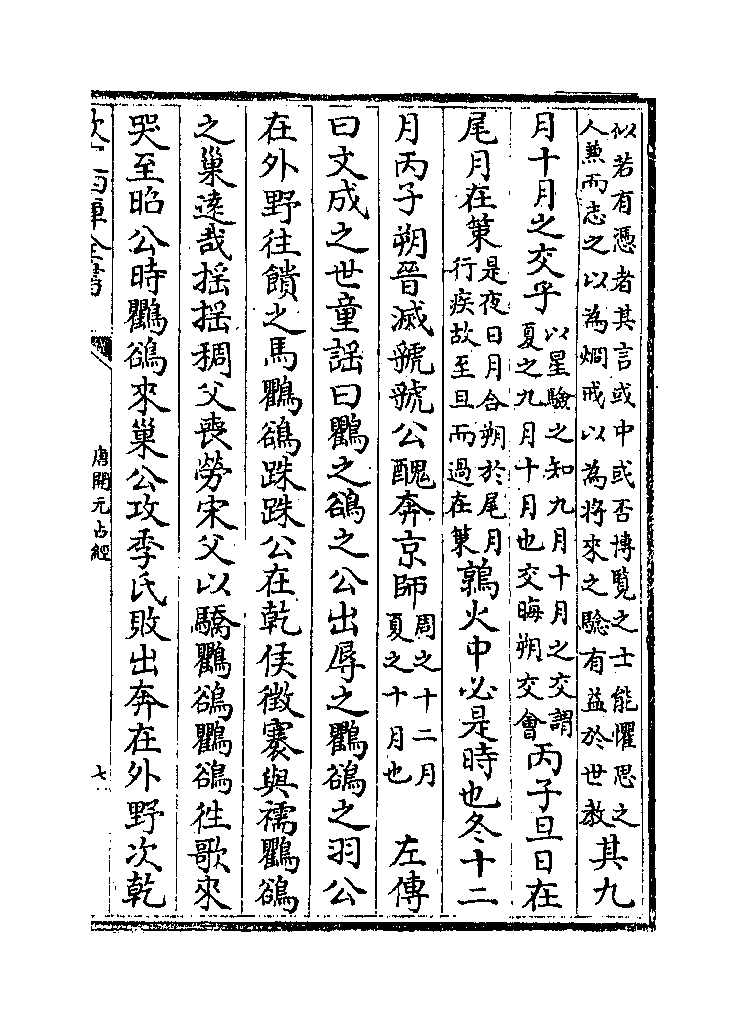 似若有憑者其言或中或否博覽之士能懼思之
人兼而志之以為烱戒以為將來之驗有益於世教
其九
月十月之交乎
以星驗之知九月十月之交謂
夏之九月十月也交晦朔交會
丙子旦日在
尾月在策
是夜日月合朔於尾月
行疾故至旦而過在策
鶉火中必是時也冬十二
月丙子朔晉滅虢虢公醜奔京師
周之十二月
夏之十月也
左傳
曰文成之世童謡曰鸜之鵒之公出辱之鸜鵒之羽公
在外野往饋之馬鸜鵒跦跦公在乾侯徵褰與襦鸜鵒
之巢逺哉揺揺稠父喪勞宋父以驕鸜鵒鸜鵒徃歌來
哭至昭公時鸜鵒來巢公攻季氏敗出奔在外野次乾
欽定四庫全書
唐開元占經
七